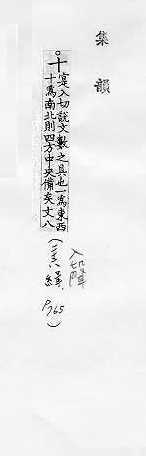 集韻
十寔入切說文數之具也一爲東西
十爲南北則四方中央備矣文八
入
P765